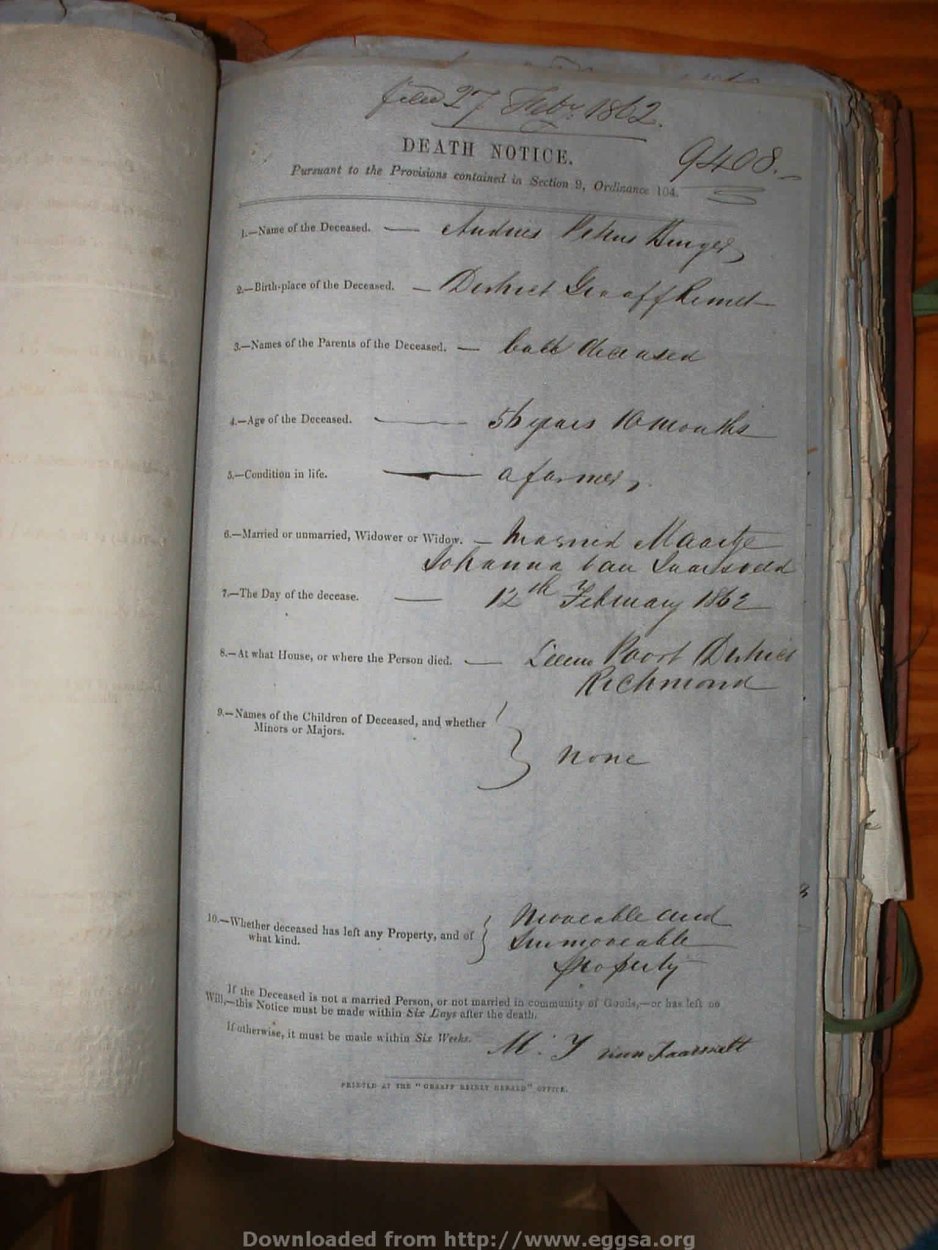 filed 27 Feby 1862.
DEATH NOTICE.
9408.
Pursuant to the Provisions contained in Section 9, Ordinance 104.
1.—Name of the Deceased. — Andries Petrus Burger
2.—Birth-place of the Deceased. — District Graaff Reinet
3.—Names of the Parents of the Deceased. — both deceased
4.—Age of the Deceased. — 56 years 10 months
5.—Condition in life. — a farmer,
6.—Married or unmarried, Widower or Widow. — Married Maartje
Johanna van
7.—The Day of the decease. — 12th February 1862
8.—At what House, or where the Person died. — Poort District
Richmond
9.—Names of the Children of Deceased, and whether
Minors or Majors.
none
10.—Whether deceased has left any Property, and of
what kind.
Moveable and
Immoveable
property
If the Deceased is not a married Person, or not married in community of Goods,—or has left no
Will,—this Notice must be made within Six Days after the death.
If otherwise, it must be made within Six Weeks.
M. J van
PRINTED AT THE "GRAAFF REINET HERALD" OFFICE.
Downloaded from http://www.eggsa.org